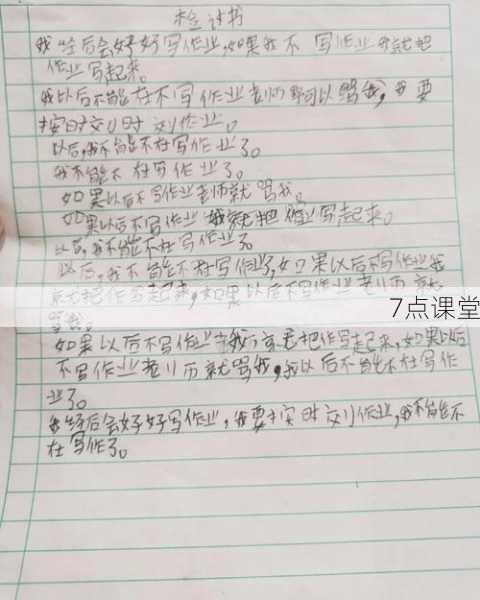 检讨书
我经后会好好写作业,如果我不写作业我就把
作业写起来。
我以后不能在不写作业老师即可以骂我,我要
按时交时交作业。
以后,我不能不在写作业了。
我不能不在写作业了。
如果以后不写作业老师就骂我。
如果以后不写作业我就把作业写起来。
以后,我不能不在写作业了
以后,我不能不在写作了,如果以后不写作业我
就把作写起来,如果以后不写作业老师就
骂我。
如果以后不写作业我就把作写起来,如果以后
不写作业老师就骂我,我以后不能不在写作
业了。
我经后会好好写作业,我要按时交作业,我不能不
在写作了。
7点课堂